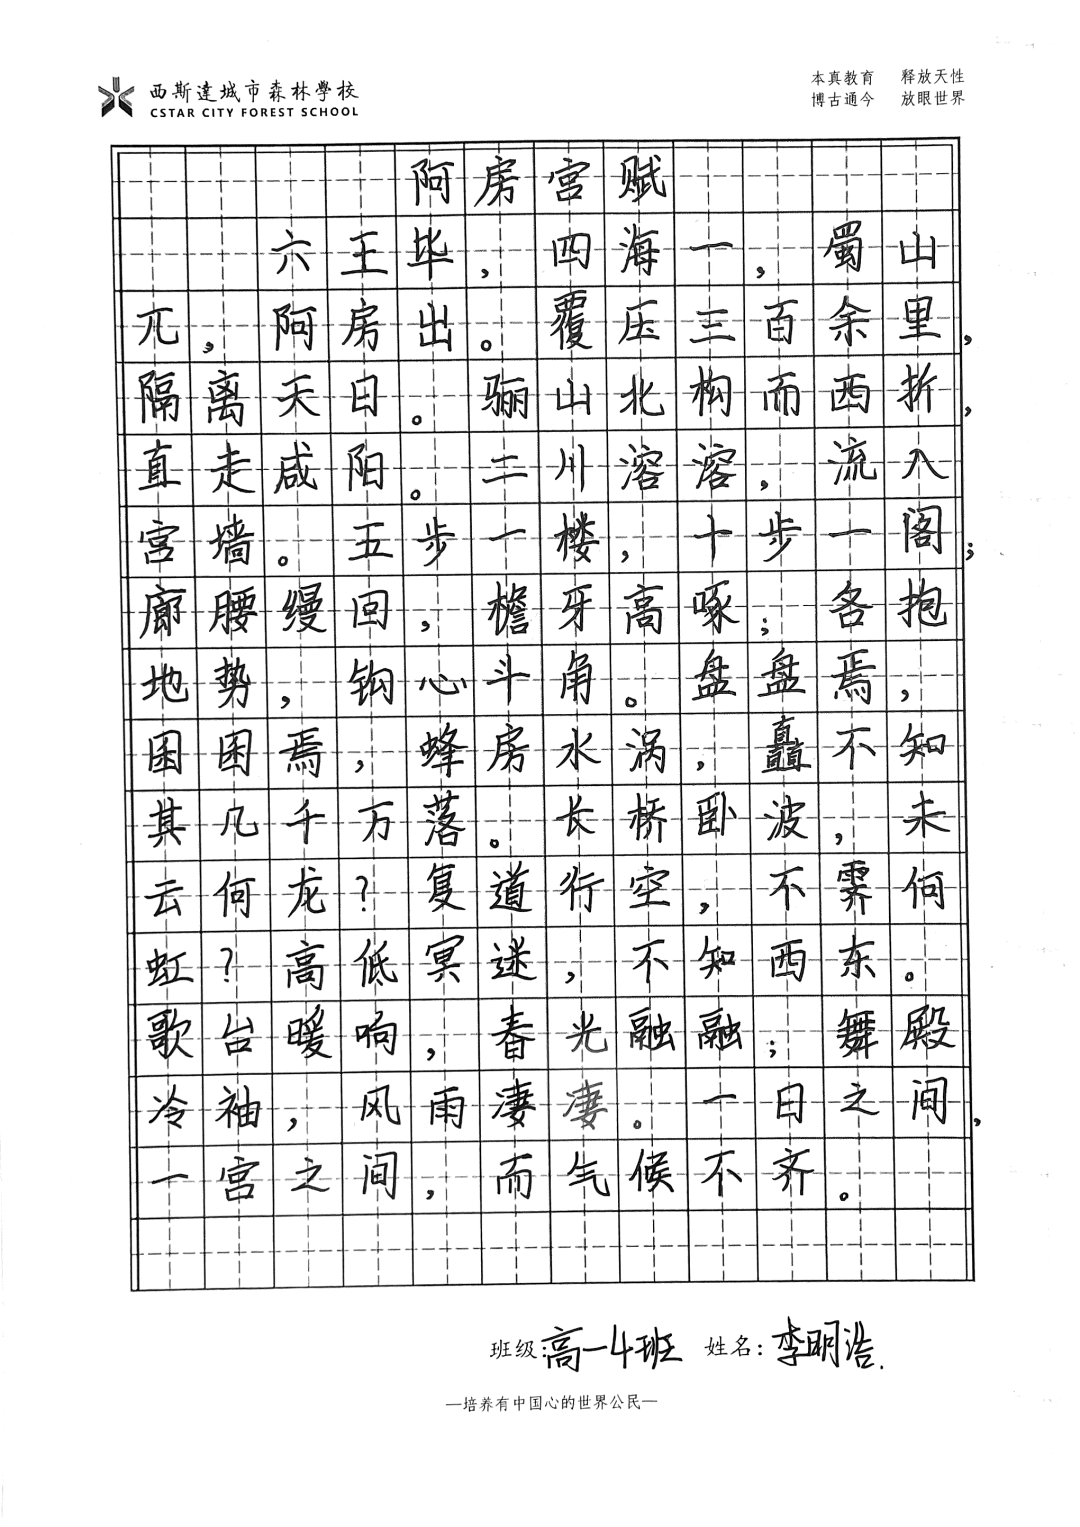 西斯達城市森林學校
CSTAR CITY FOREST SCHOOL
本真教育 释放天性
博古通今 放眼世界
阿房宫赋
六王毕，四海一，蜀山
兀，阿房出。覆压三百余里，
隔离天日。骊山北构而西折，
直走咸阳。二川溶溶，流入
宫墙。五步一楼，十步一阁；
廊腰缦回，檐牙高啄；各抱
地势，钩心斗角。盘盘焉，
囷囷焉，蜂房水涡，矗不知
其几千万落。长桥卧波，未
云何龙？复道行空，不霁何
虹？高低冥迷，不知西东。
歌台暖响，春光融融；舞殿
冷袖，风雨凄凄。一日之间，
一宫之间，而气候不齐。
班级：高一4班 姓名：李明浩.
—培养有中国心的世界公民—